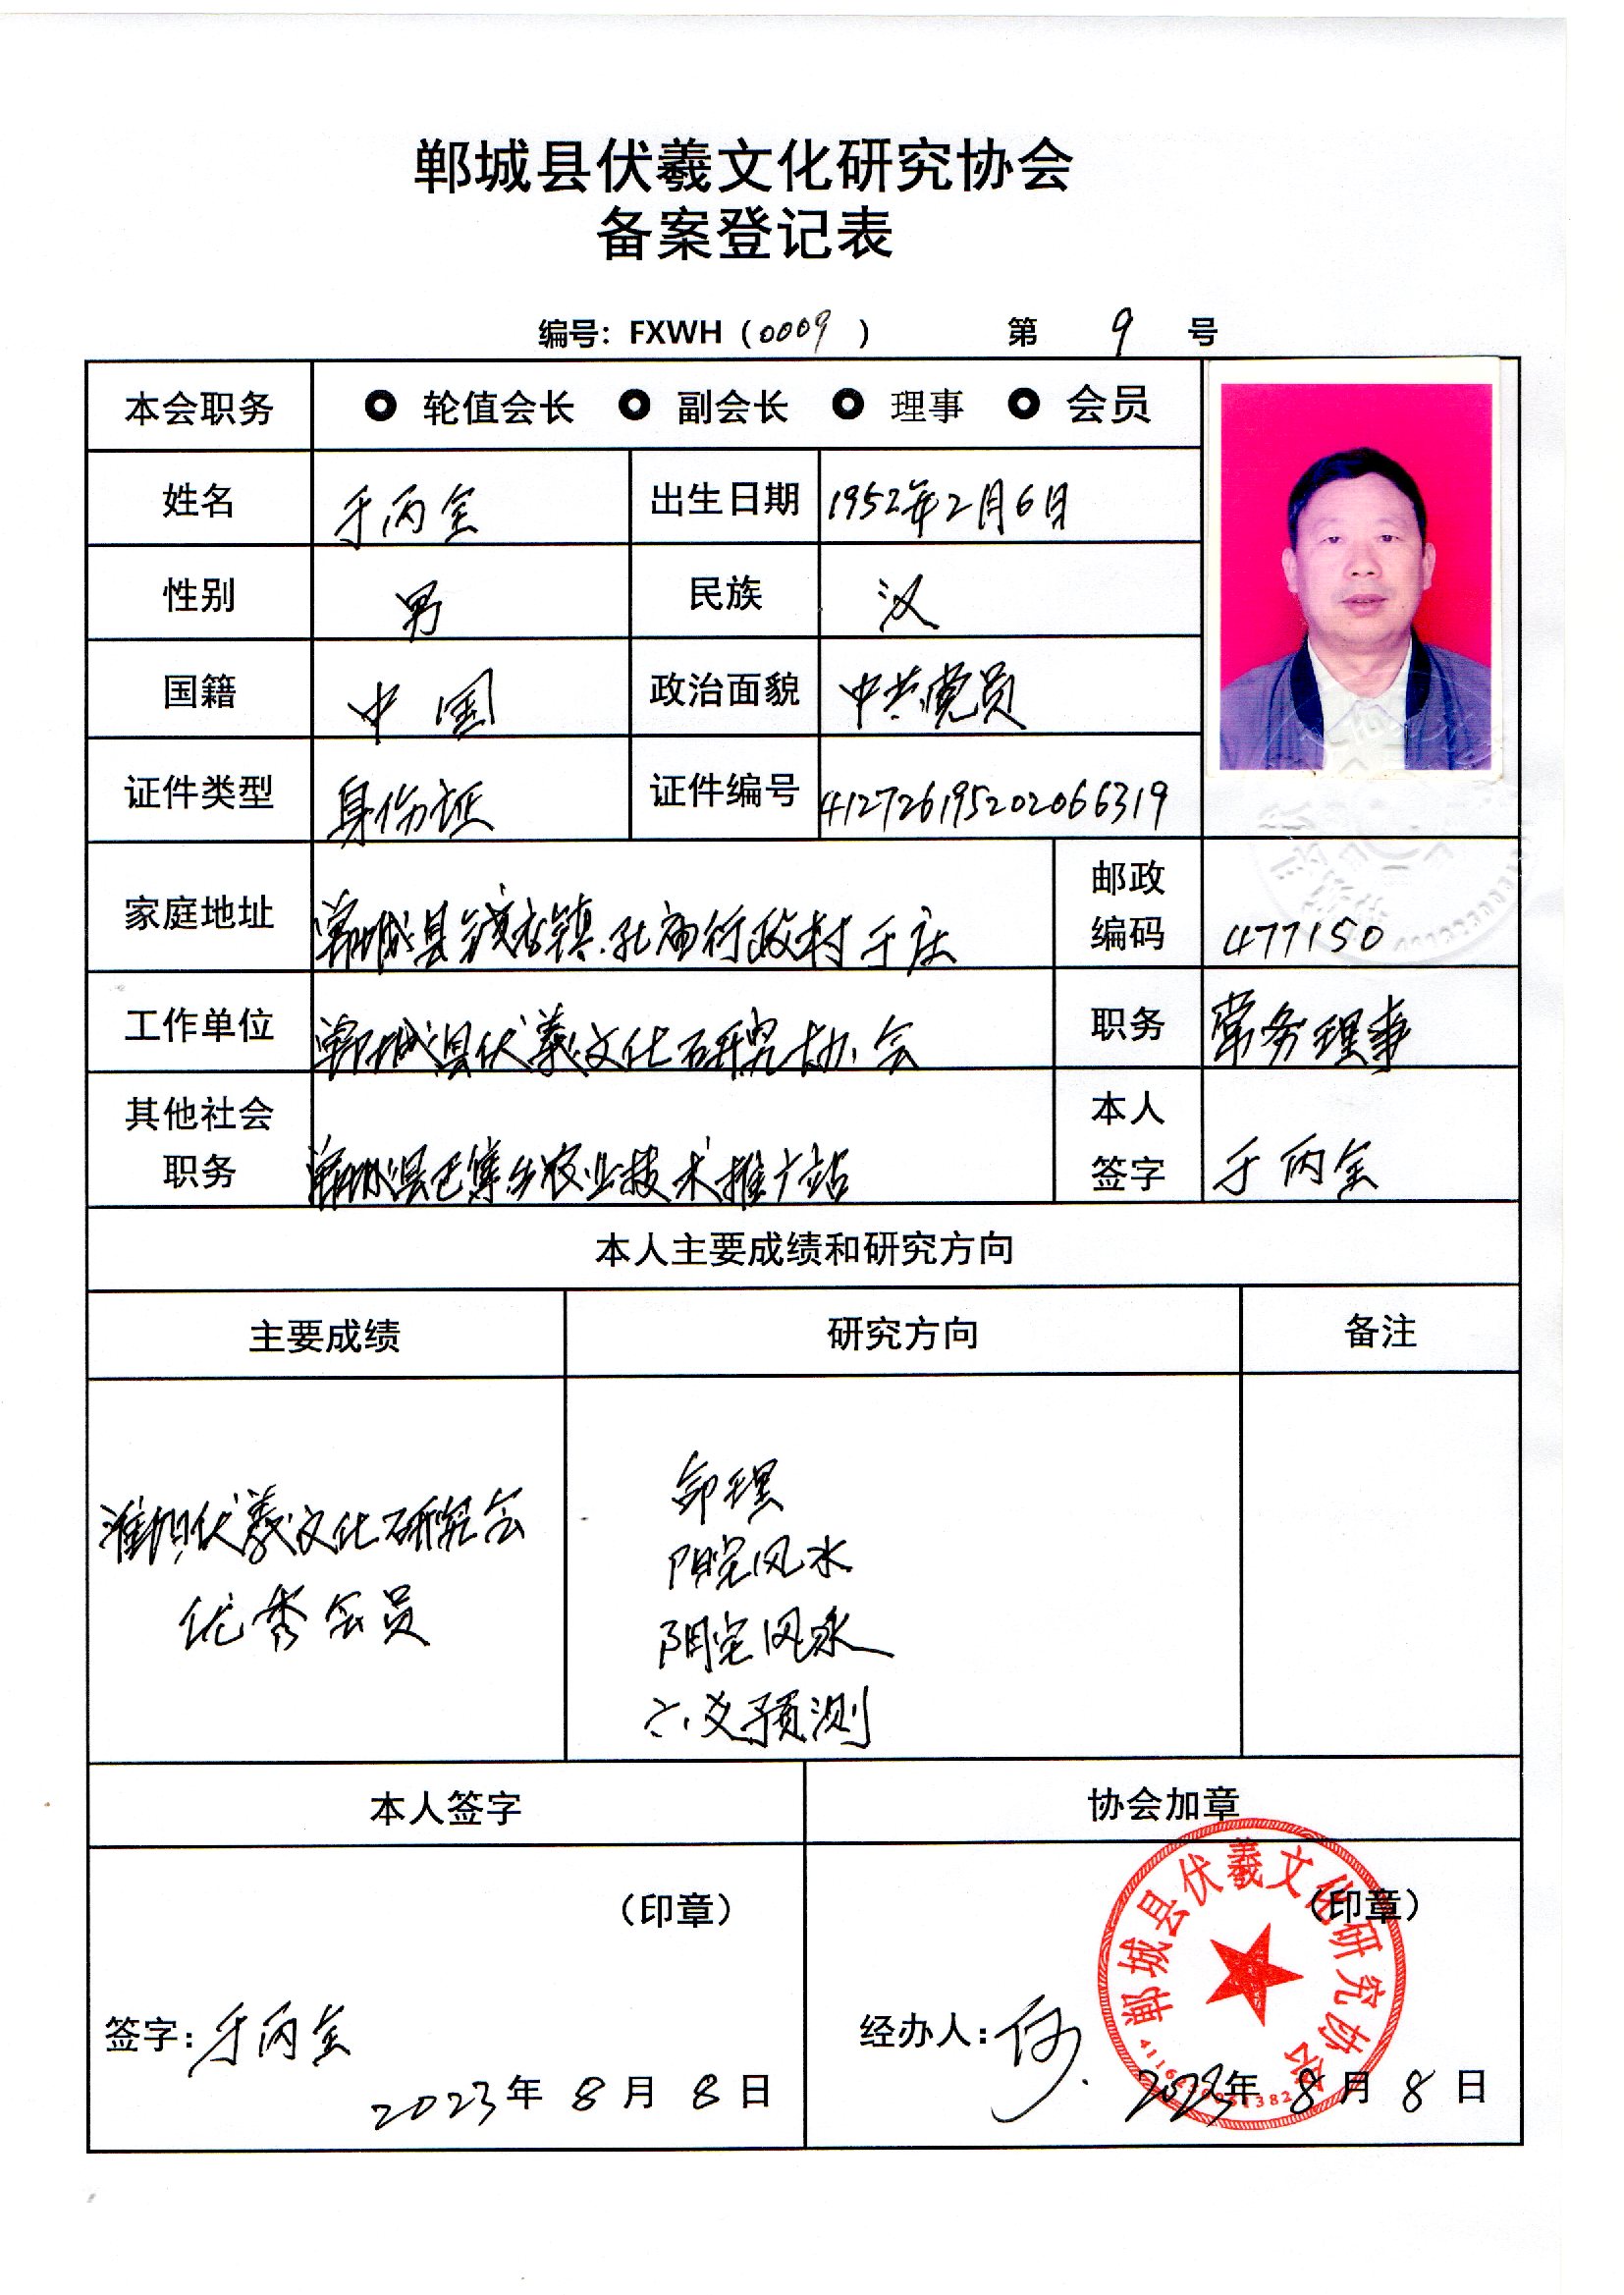 郸城县伏羲文化研究协会
备案登记表
编号：FXWH（0009） 第 9 号
本会职务 轮值会长 副会长 理事 会员
姓名 于丙全 出生日期 1952年2月6日
性别 男 民族 汉
国籍 中国 政治面貌 中共党员
证件类型 身份证 证件编号 412726195202066319
家庭地址 郸城县钱店镇孔庙行政村于庄 邮政编码 477150
工作单位 郸城县伏羲文化研究协会 职务 常务理事
其他社会职务 郸城县巴集乡农业技术推广站 本人签字 于丙全
本人主要成绩和研究方向
主要成绩 研究方向 备注
淮阳伏羲文化研究会
优秀会员
命理
阳宅风水
阴宅风水
六爻预测
本人签字 协会加章
（印章） （印章）
签字：于丙全 经办人：
2023年 8月 8日 2023年 8月 8日
郸城县伏羲文化研究协会